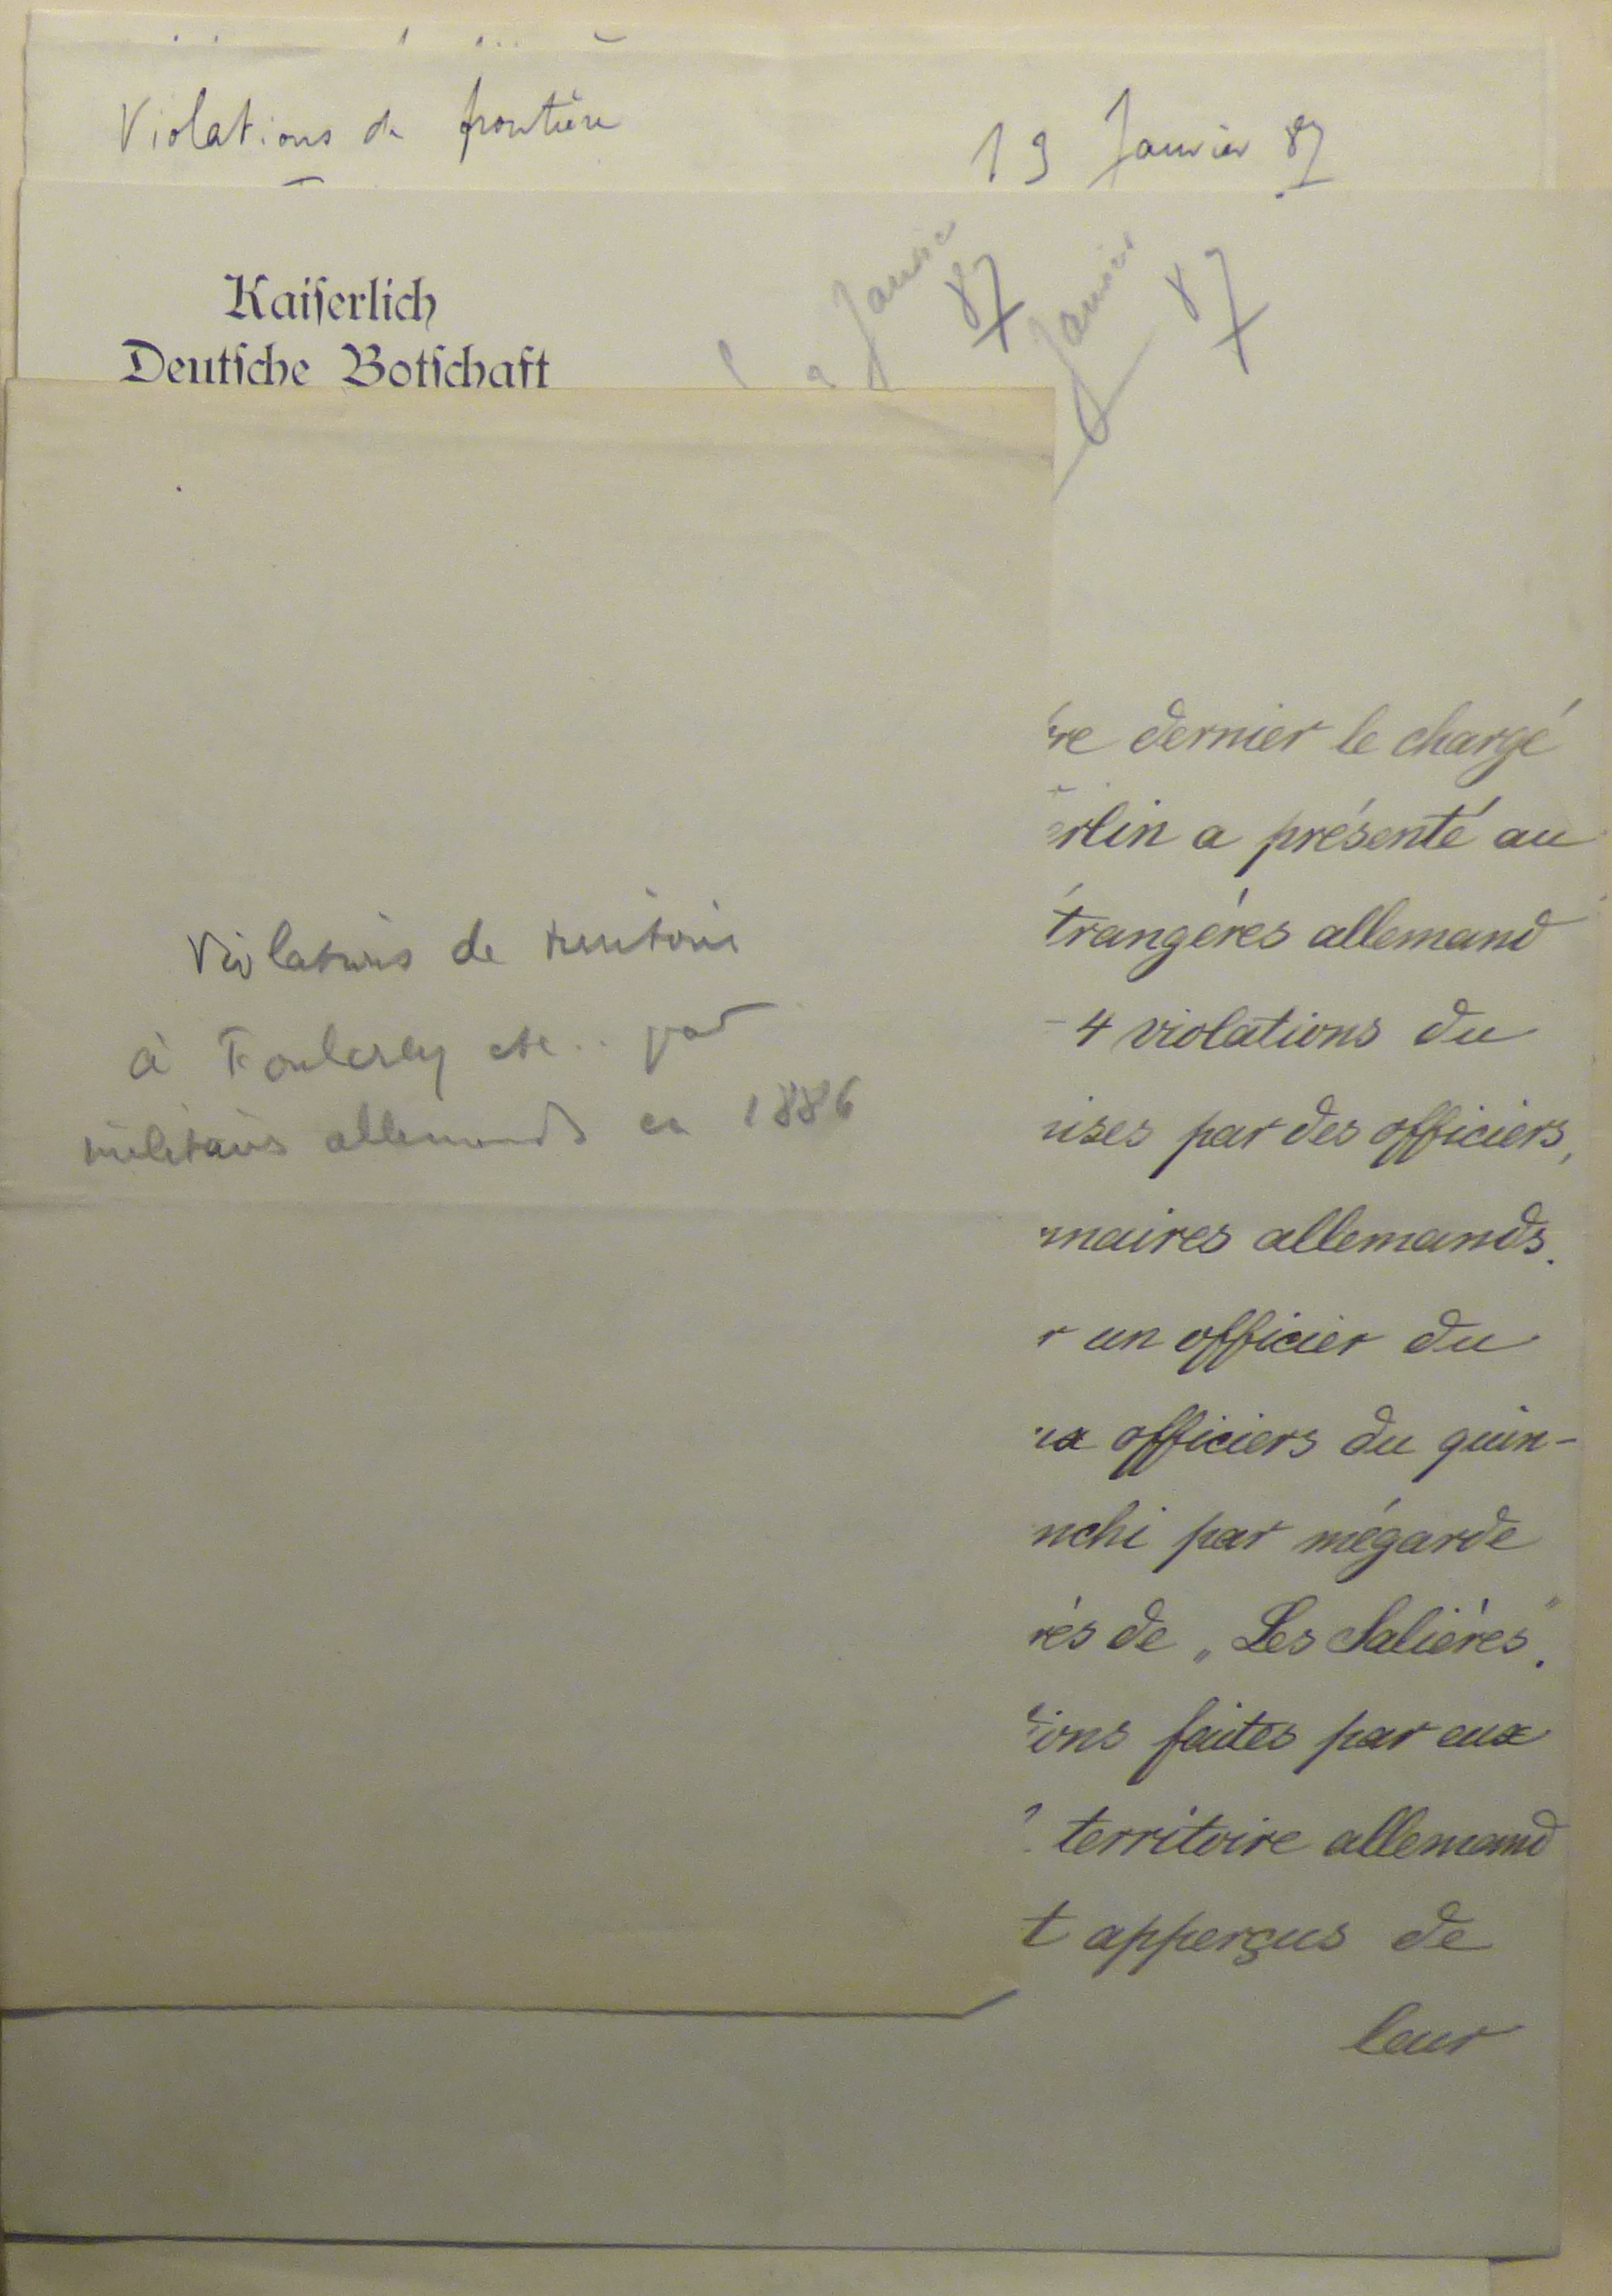 Violations de frontière
19 Janvier 87
Kaiserlich
Deutsche Botschaft
Janvier 87
Janvier 87
Violations de territoire
à Foulcrey etc.. par
militaires allemands en 1886
re dernier le chargé
erlin a présenté au
trangéres allemand
4 violations du
ises par des officiers,
maires allemands.
r un officier du
ux officiers du quin-
nchi par mégarde
rés de „Les Saliéres".
ions faites par eux
territoire allemand
t apperçus de
leur